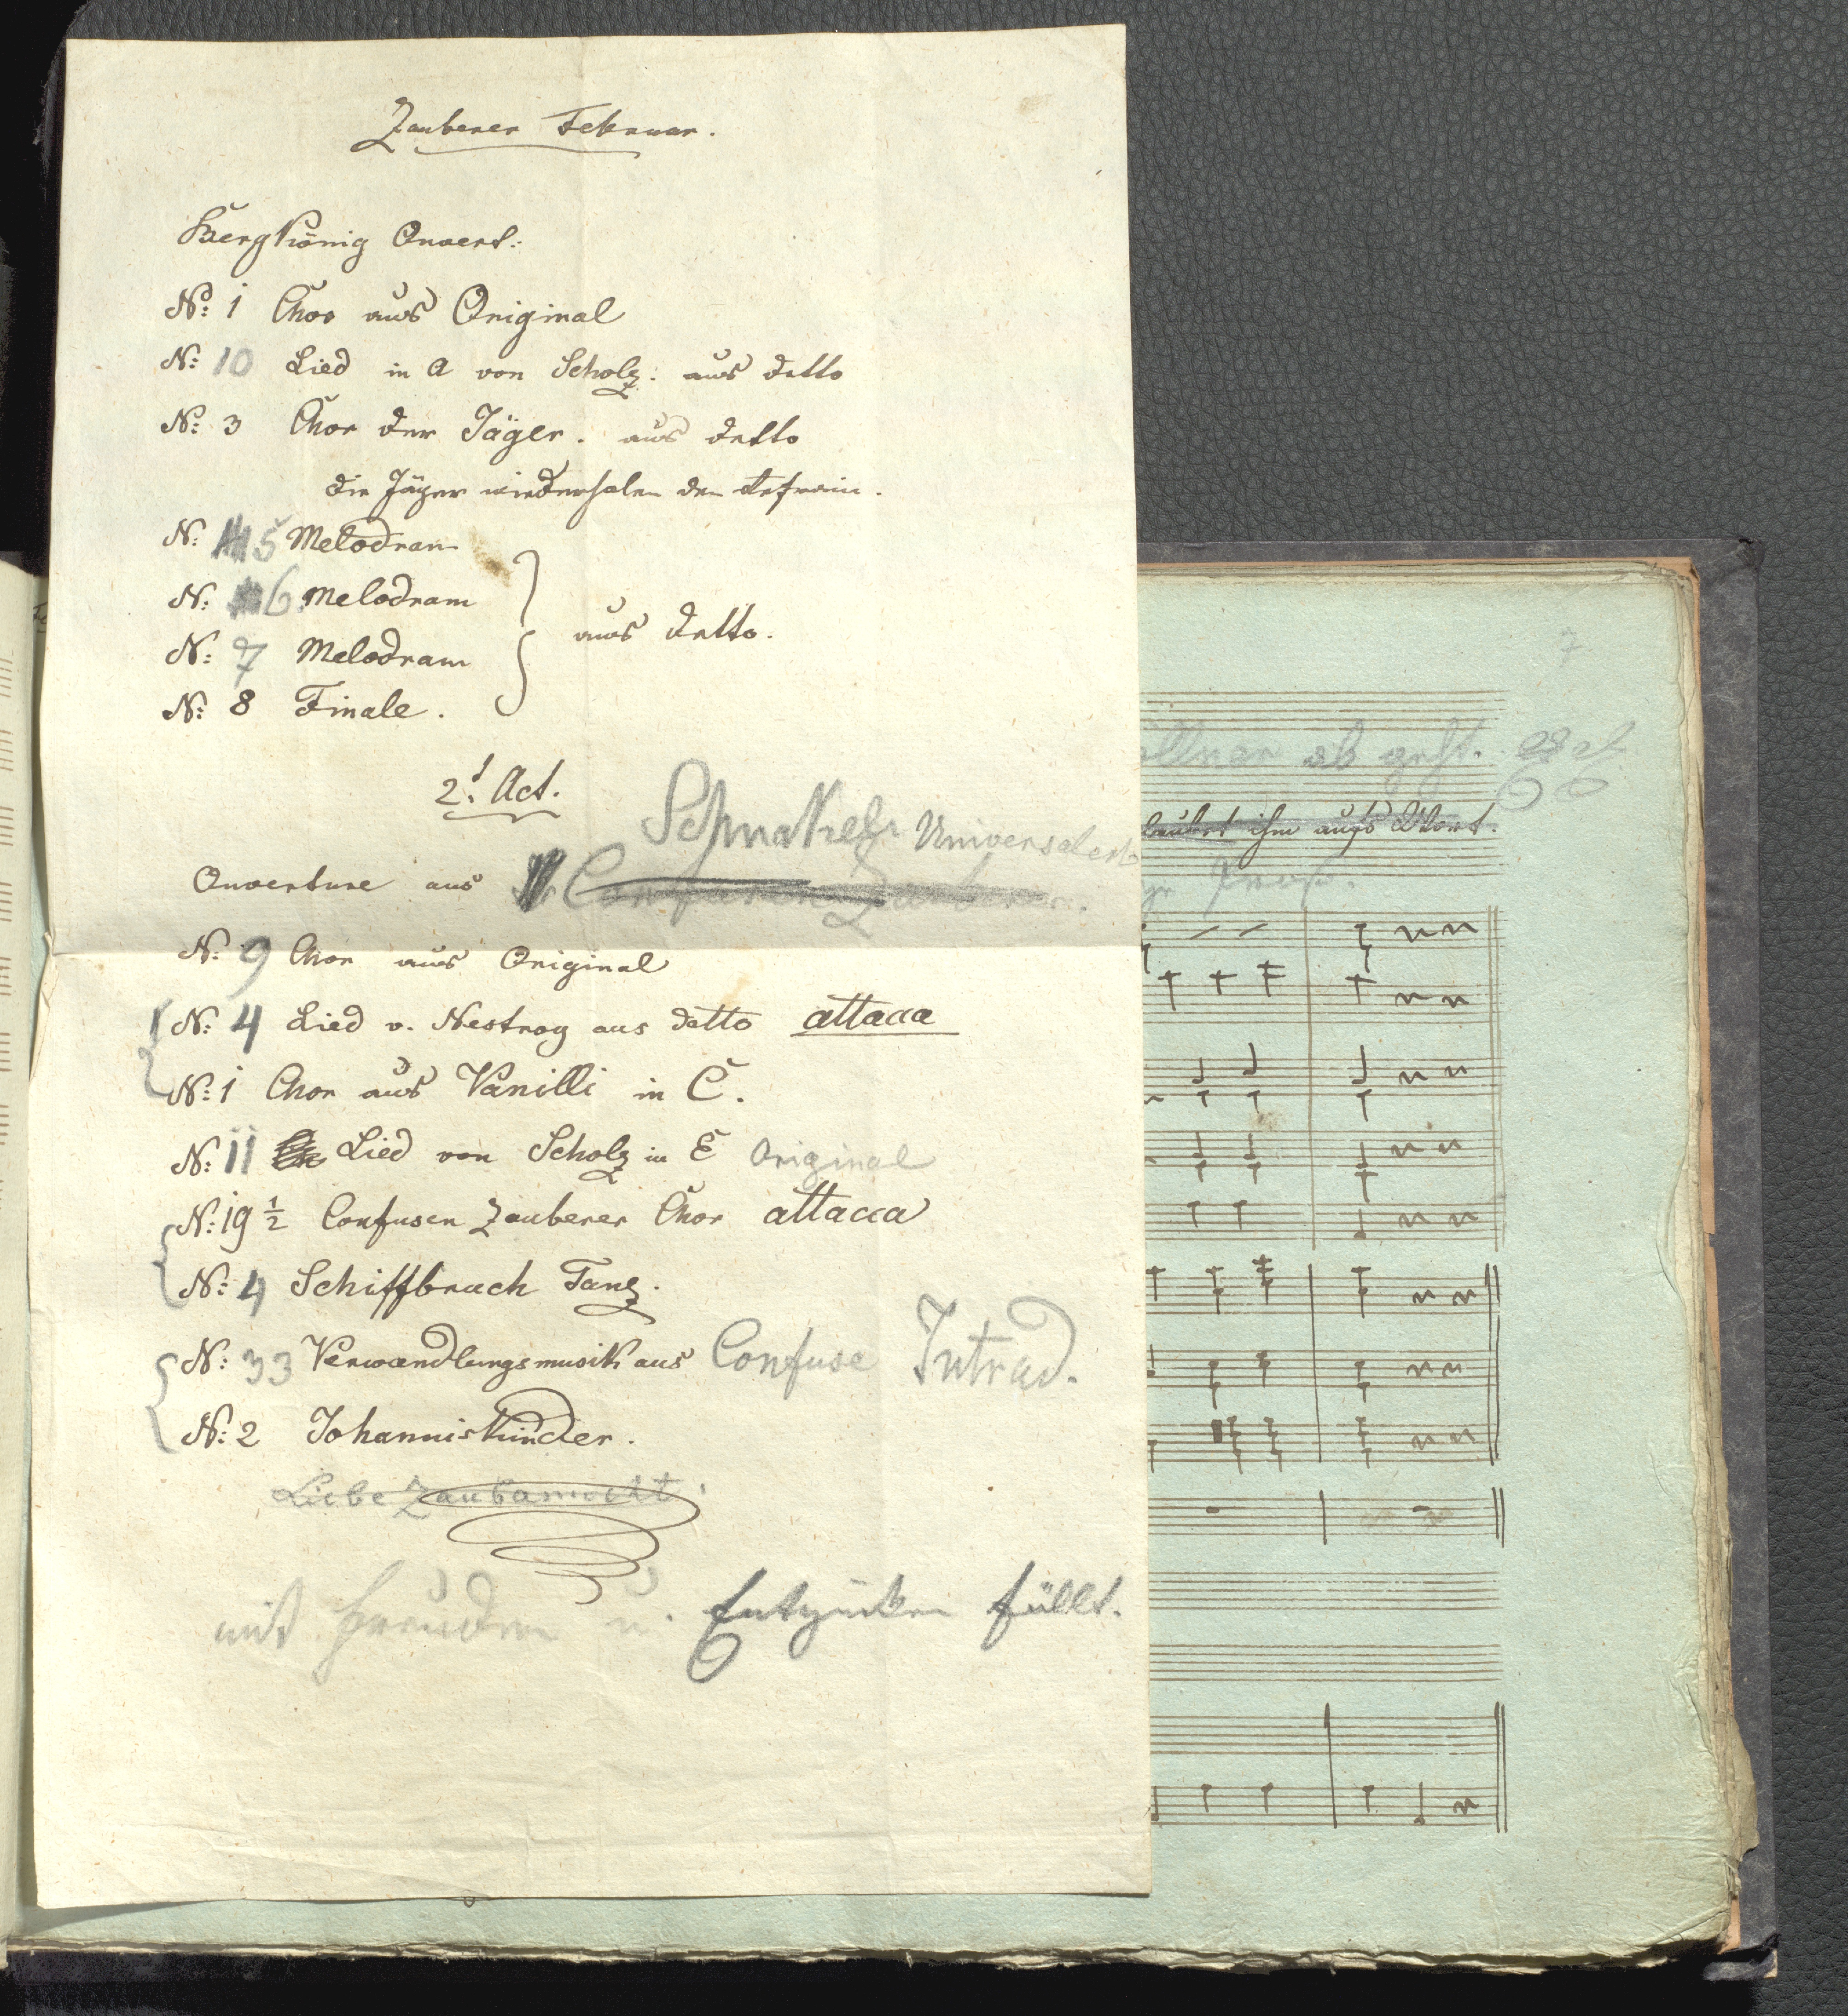 Zauberer Februar.
Bergkönig Ouvert:
No: 1 Chor aus Original
N: 10 Lied in A von Scholz: aus detto
N: 3 Chor der Jäger. aus detto
die Jäger wiederholen den Refrain.
N: 5 Melodram
N: 6 Melodram
aus detto.
N: 7 Melodram
N: 8 Finale.
2t Act.
Schnakerl Universalerb
Ouverture aus Confusen Zauberer.
N: 9 Chor aus Original
N: 4 Lied v. Nestroy aus detto attacca
N: 1 Chor aus Vanilli in C.
N: 11 Lied von Scholz in E Original
N: 19 1/2 Confusen Zauberer Chor attacca
N: 4 Schiffbruch Tanz.
N: 33 Verwandlungsmusik aus Confuse Intrad.
N: 2 Johannistkinder.
Liebe
mit Freuden u. Entzücken füllt.
7
ab geht.
ihm aufs Wort.